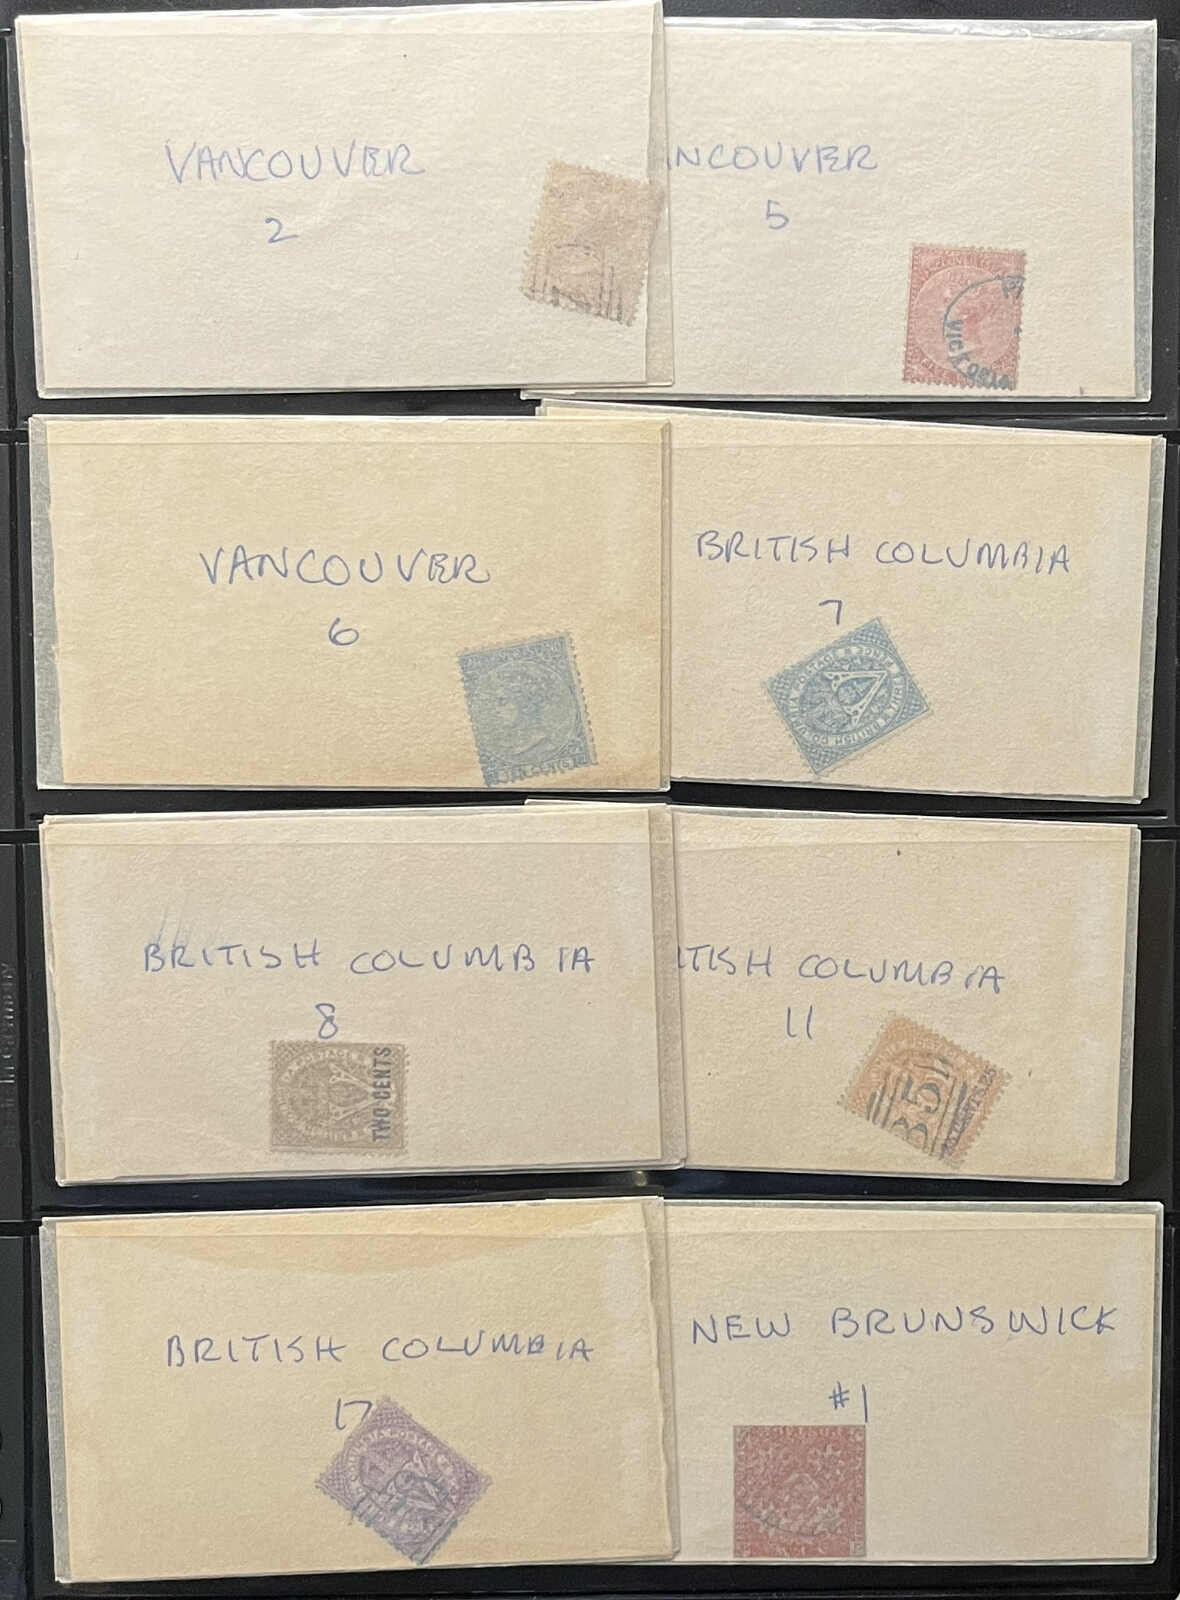 VANCOUVER
2
NCOUVER
5
VICTORIA
VANCOUVER
6
BRITISH COLUMBIA
7
POSTAGE
BRITISH COLUMBIA
8
POSTAGE
TWO·CENTS
ITISH COLUMBIA
11
35
BRITISH COLUMBIA
17
POSTAGE
NEW BRUNSWICK
#1